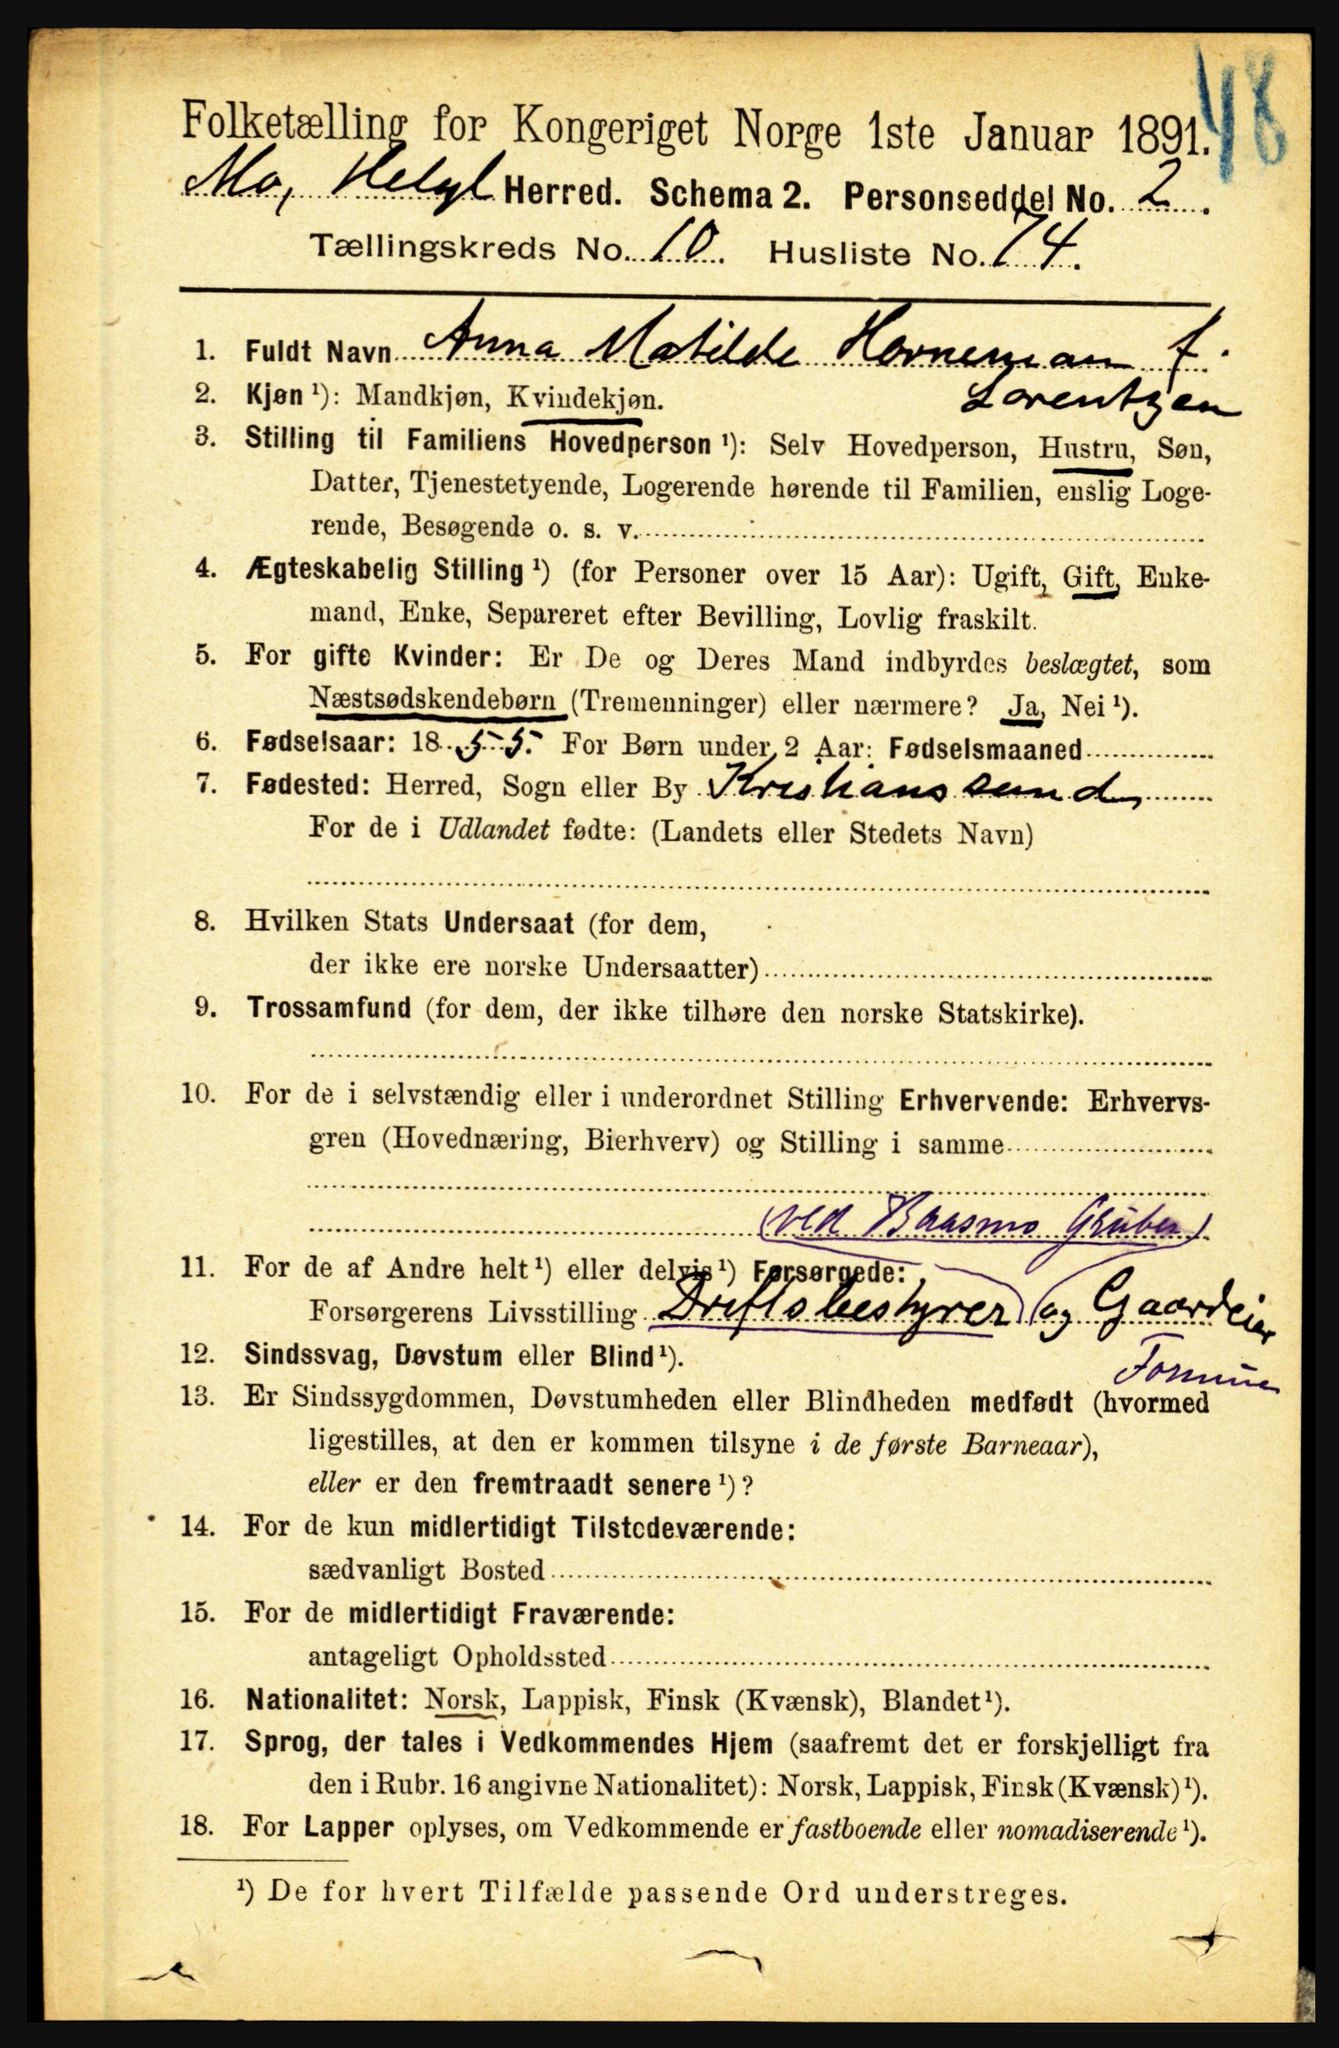 48
Folketælling for Kongeriget Norge 1ste Januar 1891.
Mo, Helgl Herred. Schema 2. Personseddel No. 2.
Tællingskreds No. 10. Husliste No. 74.
1. Fuldt Navn Anna Matilde Horneman f.
Lorentzen
2. Kjøn ¹): Mandkjøn, Kvindekjøn.
3. Stilling til Familiens Hovedperson ¹): Selv Hovedperson, Hustru, Søn,
Datter, Tjenestetyende, Logerende hørende til Familien, enslig Loge-
rende, Besøgende o. s. v.
4. Ægteskabelig Stilling ¹) (for Personer over 15 Aar): Ugift, Gift, Enke-
mand, Enke, Separeret efter Bevilling, Lovlig fraskilt.
5. For gifte Kvinder: Er De og Deres Mand indbyrdes beslægtet, som
Næstsødskendebørn (Tremenninger) eller nærmere? Ja, Nei ¹).
6. Fødselsaar: 1855. For Børn under 2 Aar: Fødselsmaaned
7. Fødested: Herred, Sogn eller By Kristianssund
For de i Udlandet fødte: (Landets eller Stedets Navn)
8. Hvilken Stats Undersaat (for dem,
der ikke ere norske Undersaatter)
9. Trossamfund (for dem, der ikke tilhøre den norske Statskirke).
10. For de i selvstændig eller i underordnet Stilling Erhvervende: Erhvervs-
gren (Hovednæring, Bierhverv) og Stilling i samme
(ved Baasmo Gruber)
11. For de af Andre helt ¹) eller delvis ¹) Forsørgede:
Forsørgerens Livsstilling Driftsbestyrer og Gaardeier
12. Sindssvag, Døvstum eller Blind ¹).
13. Er Sindssygdommen, Døvstumheden eller Blindheden medfødt (hvormed
ligestilles, at den er kommen tilsyne i de første Barneaar),
eller er den fremtraadt senere ¹)?
14. For de kun midlertidigt Tilstedeværende:
sædvanligt Bosted
15. For de midlertidigt Fraværende:
antageligt Opholdssted
16. Nationalitet: Norsk, Lappisk, Finsk (Kvænsk), Blandet ¹).
17. Sprog, der tales i Vedkommendes Hjem (saafremt det er forskjelligt fra
den i Rubr. 16 angivne Nationalitet): Norsk, Lappisk, Finsk (Kvænsk) ¹).
18. For Lapper oplyses, om Vedkommende er fastboende eller nomadiserende ¹).
¹) De for hvert Tilfælde passende Ord understreges.